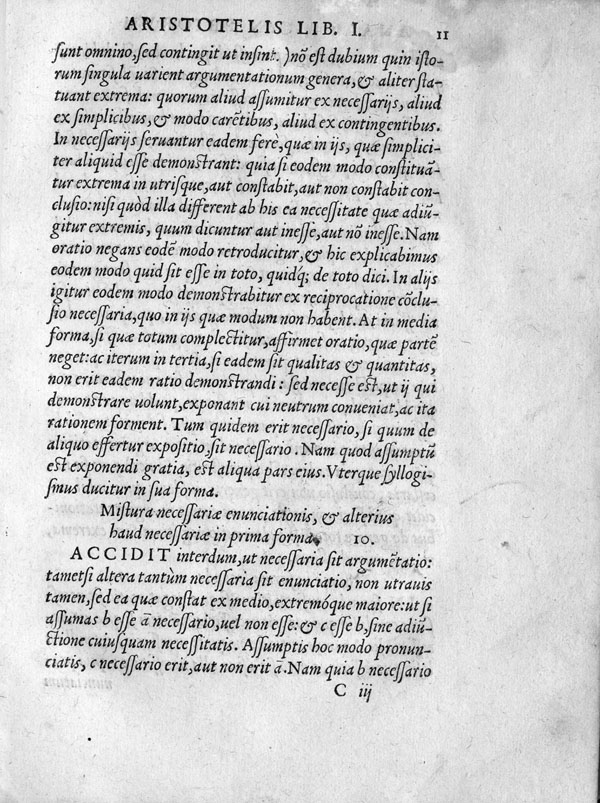 ARISTOTELIS LIB. I. 11
sunt omnino, sed contingit ut insint. )nō est dubium quin isto-
rum singula uarient argumentationum genera, & aliter sta-
tuant extrema: quorum aliud assumitur ex necessarijs, aliud
ex simplicibus, & modo carētibus, aliud ex contingentibus.
In necessarijs seruantur eadem ferè, quæ in ijs, quæ simplici-
ter aliquid esse demonstrant: quia si eodem modo constituā-
tur extrema in utrisque, aut constabit, aut non constabit con-
clusio: nisi quòd illa different ab his ea necessitate quæ adiū-
gitur extremis, quum dicuntur aut inesse, aut nō inesse. Nam
oratio negans eodē modo retroducitur, & hic explicabimus
eodem modo quid sit esse in toto, quidq; de toto dici. In alijs
igitur eodem modo demonstrabitur ex reciprocatione cōclu-
sio necessaria, quo in ijs quæ modum non habent. At in media
forma, si quæ totum complectitur, affirmet oratio, quæ partē
neget: ac iterum in tertia, si eadem sit qualitas & quantitas,
non erit eadem ratio demonstrandi: sed necesse est, ut ij qui
demonstrare uolunt, exponant cui neutrum conueniat, ac ita
rationem forment. Tum quidem erit necessario, si quum de
aliquo effertur expositio, sit necessario. Nam quod assumptū
est exponendi gratia, est aliqua pars eius. Vterque syllogi-
smus ducitur in sua forma.
Mistura necessariæ enunciationis, & alterius
haud necessariæ in prima forma. 10.
ACCIDIT interdum, ut necessaria sit argumētatio:
tametsi altera tantùm necessaria sit enunciatio, non utrauis
tamen, sed ea quæ constat ex medio, extremóque maiore: ut si
assumas b esse ā necessario, uel non esse: & c esse b, sine adiū-
ctione cuiusquam necessitatis. Assumptis hoc modo pronun-
ciatis, c necessario erit, aut non erit ā. Nam quia b necessario
C iij